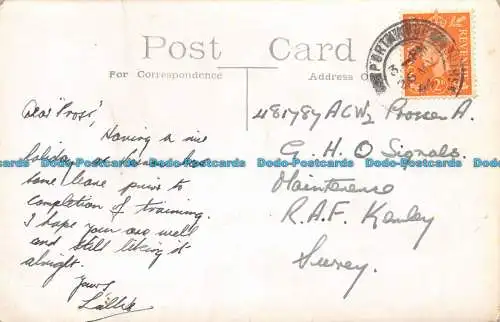 Post Card
For Correspondence
Address O
Dear 'Pross',
Having a nice
holiday at home
some leave prior to
completion of training.
I hope your are well
and still liking it
alright.
Yours,
481787 ACW2 Prosser A.
G. H. O Signals
Maintenence
R.A.F. Kenley
Surrey.
REVENUE
Dodo-Postcards Dodo-Postcards Dodo-Postcards Dodo-Postcards Dodo-Postcards Dodo-Postcards